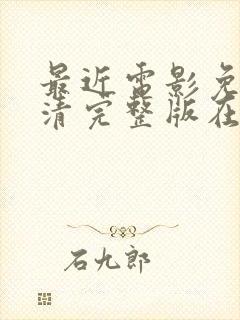 最近电影免
清完整版在
石九郎